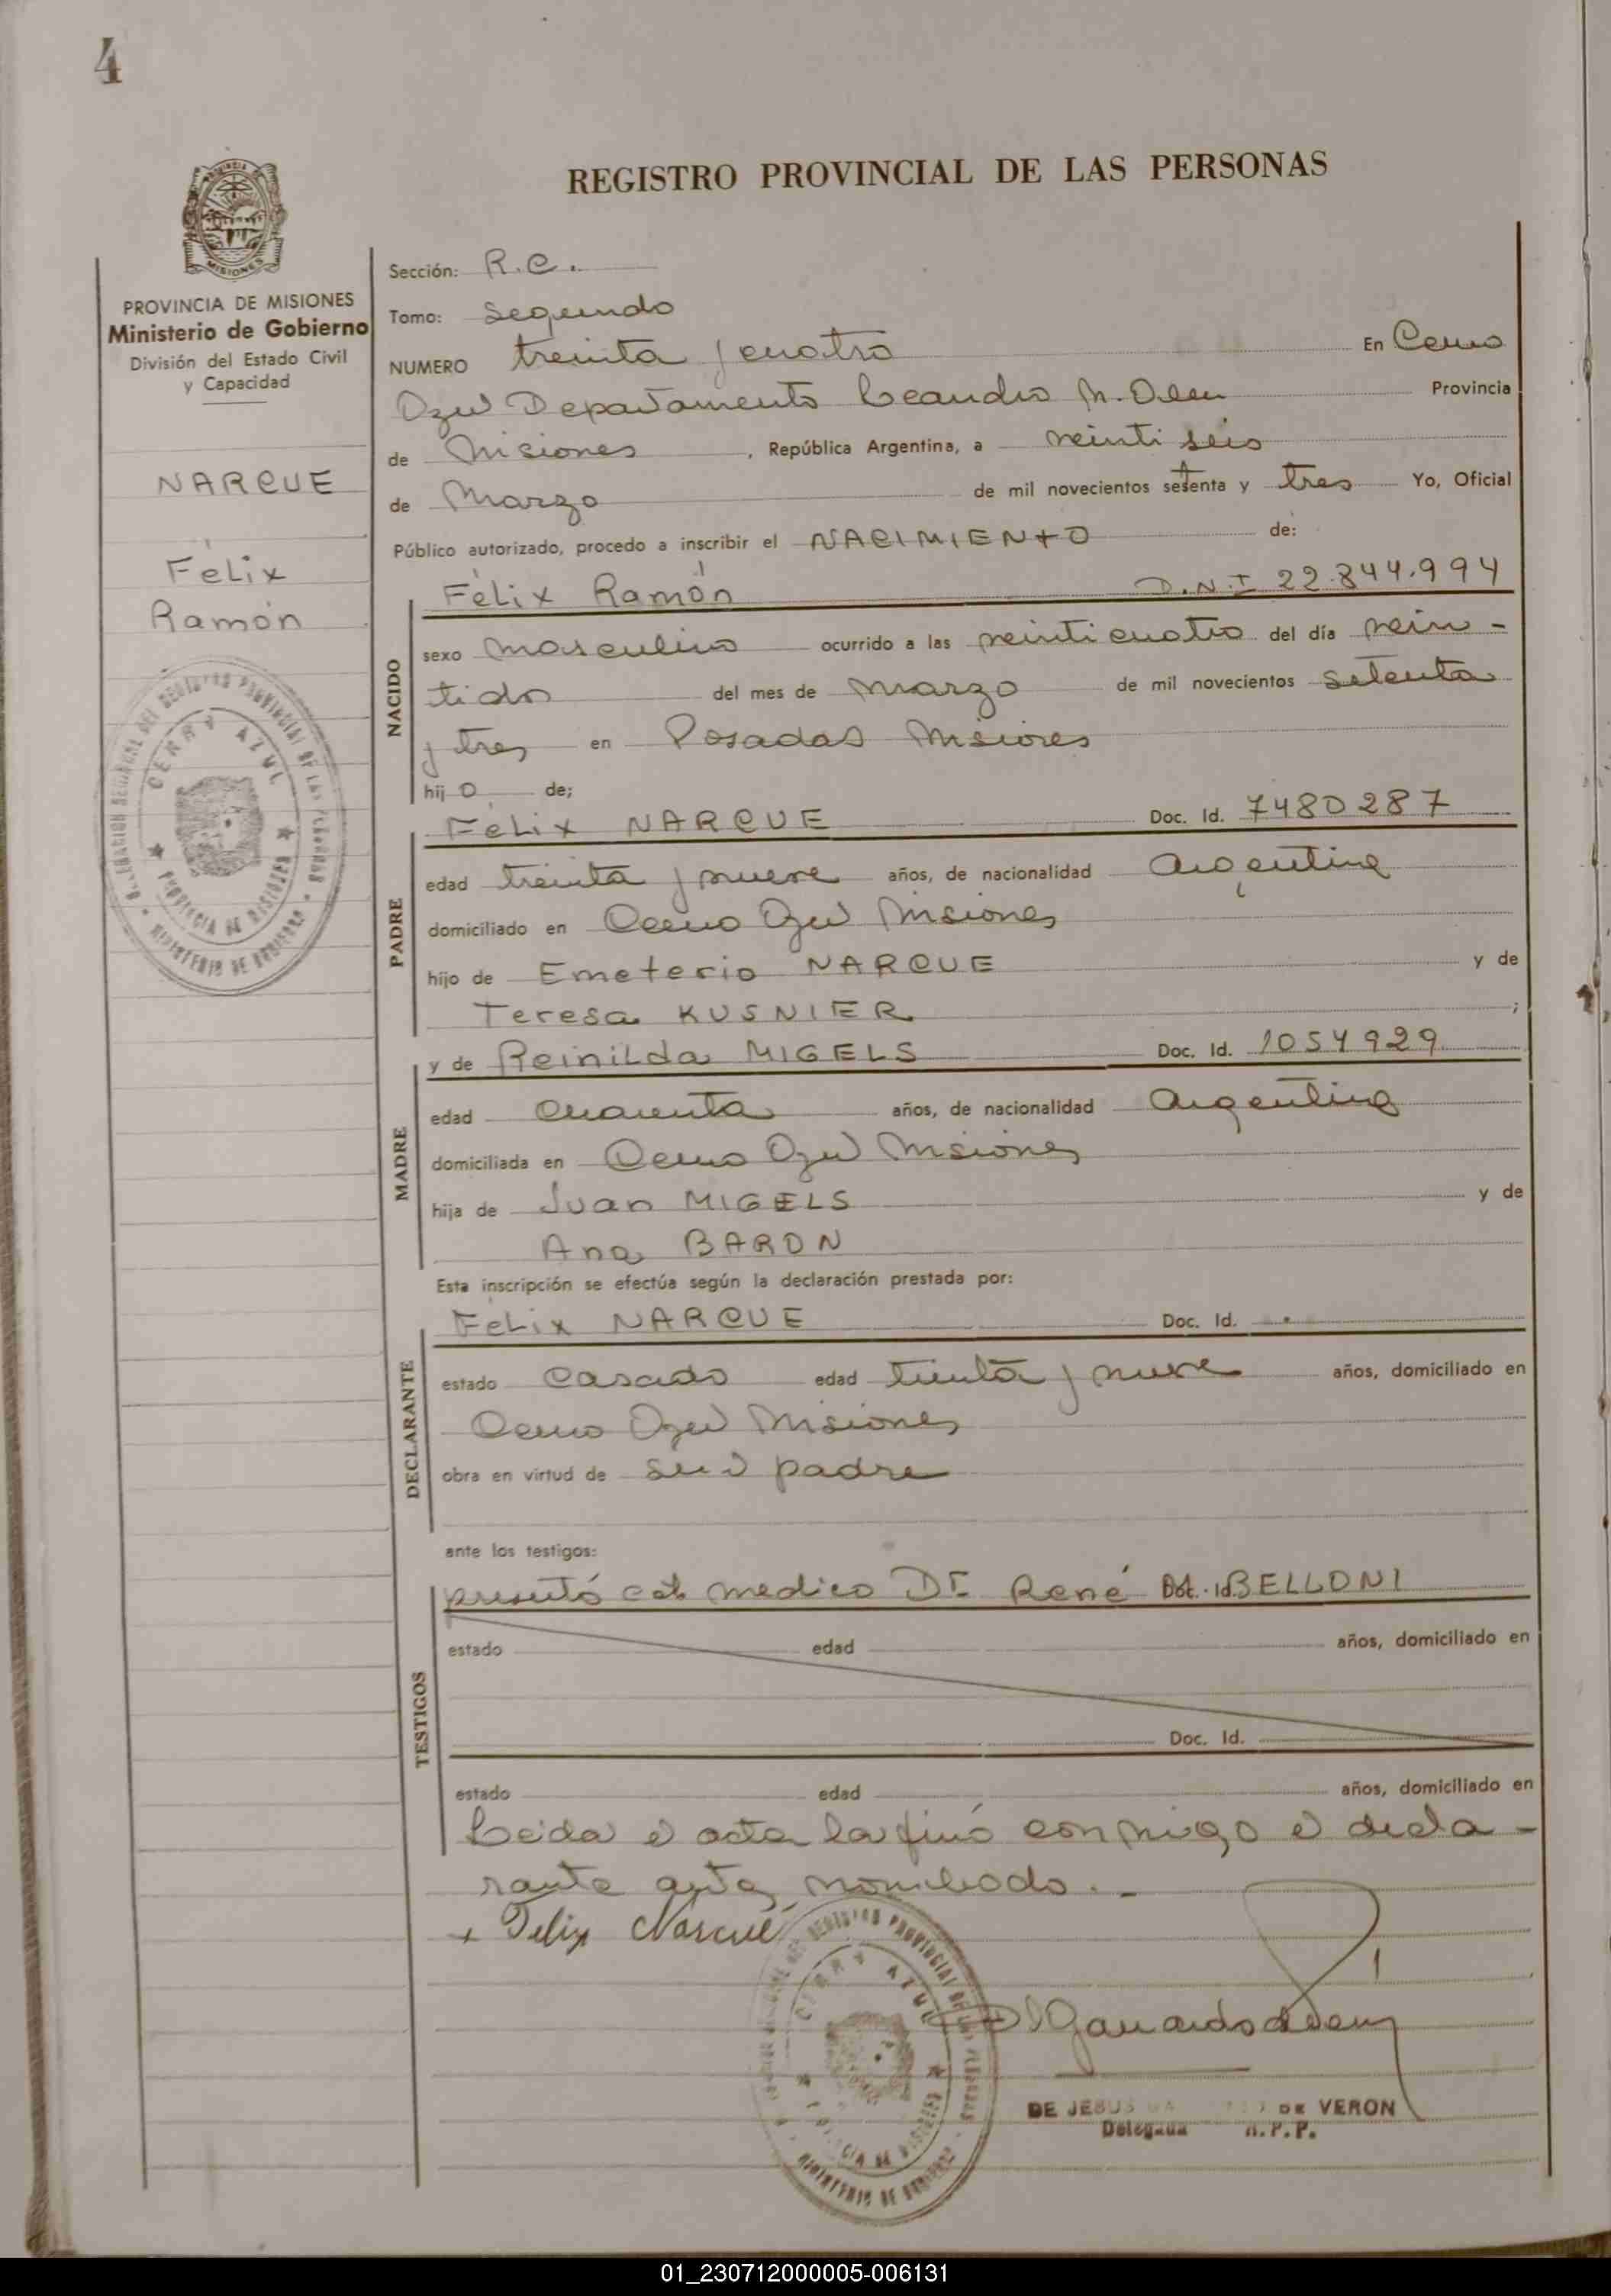 4
REGISTRO PROVINCIAL DE LAS PERSONAS
MISIONES
PROVINCIA DE MISIONES
Ministerio de Gobierno
División del Estado Civil
y Capacidad
NARCUE
Félix
Ramón
Sección: R.C.
Tomo: Segundo
NUMERO treinta y cuatro En Cerro
Azul Departamento Leandro N. Alem Provincia
de Misiones, República Argentina, a veintiseis
de Marzo de mil novecientos setenta y tres Yo, Oficial
Público autorizado, procedo a inscribir el NACIMIENTO de:
NACIDO
Félix Ramón D.N.I 22.844.994
sexo masculino ocurrido a las veinticuatro del día vein-
tidos del mes de marzo de mil novecientos setenta
y tres en Posadas Misiones
hijo de;
PADRE
Félix NARCUE Doc. Id. 7480287
edad treinta y nueve años, de nacionalidad argentina
domiciliado en Cerro Azul Misiones
hijo de Emeterio NARCUE y de
Teresa KUSNIER ;
MADRE
y de Reinilda MIGELS Doc. Id. 1054929
edad cuarenta años, de nacionalidad argentina
domiciliada en Cerro Azul Misiones
hija de Juan MIGELS y de
Ana BARON
Esta inscripción se efectúa según la declaración prestada por:
DECLARANTE
Félix NARCUE Doc. Id.
estado casado edad treinta y nueve años, domiciliado en
Cerro Azul Misiones
obra en virtud de ser el padre
ante los testigos:
TESTIGOS
presentó cet. medico Dr. René Doc. Id. BELLONI
estado edad años, domiciliado en
Doc. Id.
estado edad años, domiciliado en
Leida el acta la firmó conmigo el decla-
rante antes nombrado.-
+ Felix Narcué
CERRO AZUL
PROVINCIA DE MISIONES
MINISTERIO DE GOBIERNO
DE JESUS DE VERON
Delegada R.P.P.
01_230712000005-006131